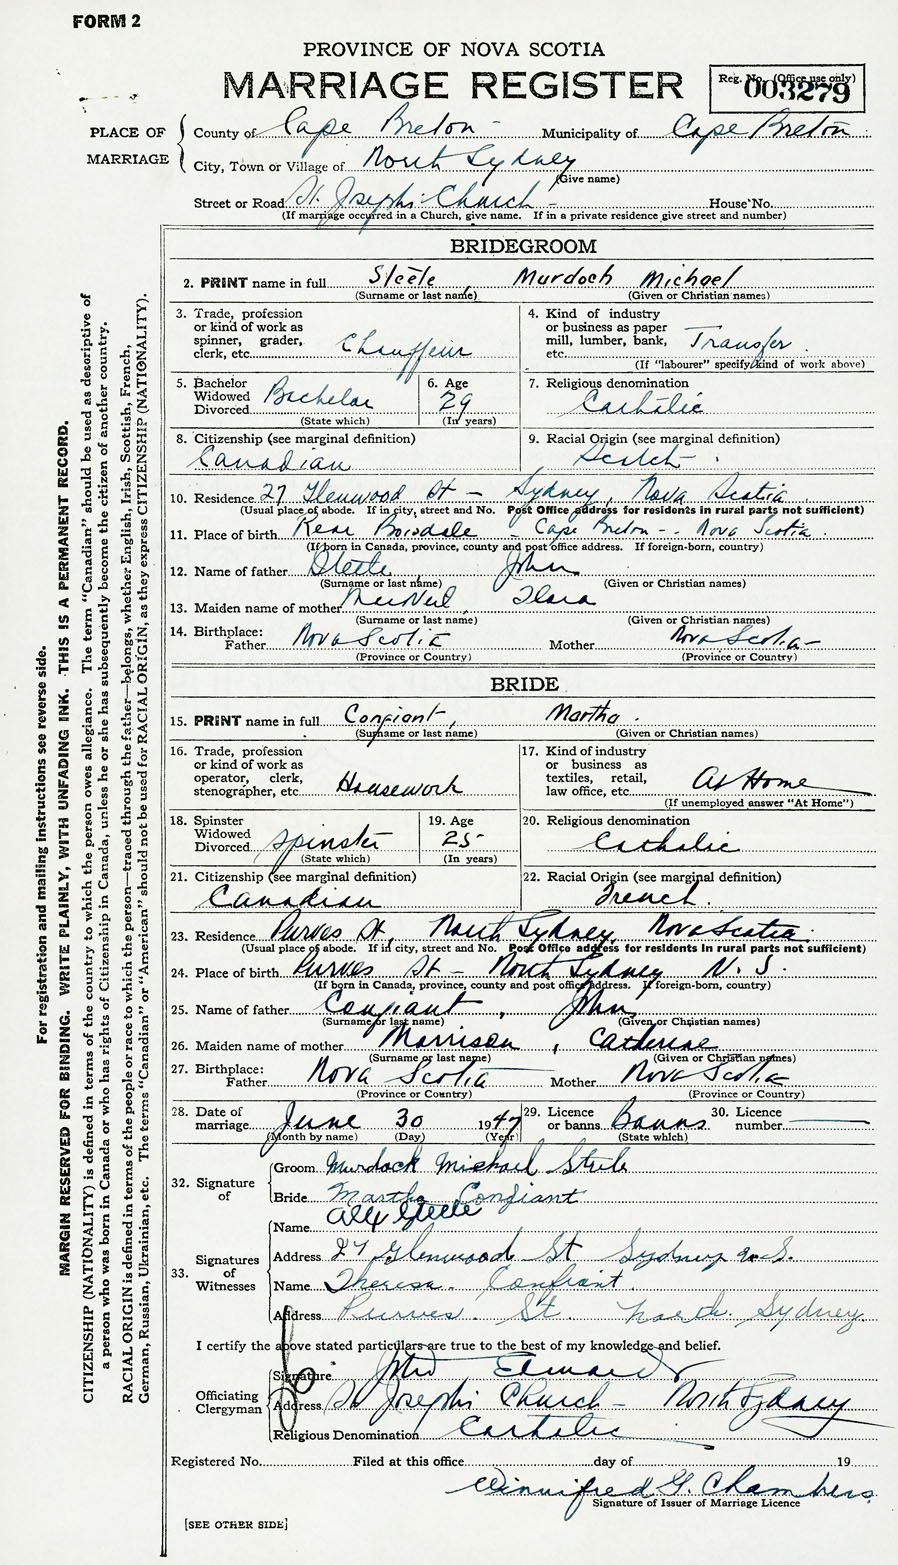 FORM 2
PROVINCE OF NOVA SCOTIA
MARRIAGE REGISTER
Reg. No. (Office use only)
003279
PLACE OF MARRIAGE
County of Cape Breton Municipality of Cape Breton
City, Town or Village of North Sydney
(Give name)
Street or Road St. Josephs Church House No.
(If marriage occurred in a Church, give name. If in a private residence give street and number)
BRIDEGROOM
2. PRINT name in full Steele, Murdoch Michael
(Surname or last name) (Given or Christian names)
3. Trade, profession or kind of work as spinner, grader, clerk, etc. Chauffeur
4. Kind of industry or business as paper mill, lumber, bank, etc. Transfer
(If "labourer" specify kind of work above)
5. Bachelor Widowed Divorced Bachelor
(State which)
6. Age 29
(In years)
7. Religious denomination Catholic
8. Citizenship (see marginal definition) Canadian
9. Racial Origin (see marginal definition) Scotch
10. Residence 27 Glenwood St - Sydney, Nova Scotia
(Usual place of abode. If in city, street and No. Post Office address for residents in rural parts not sufficient)
11. Place of birth Rear Boisdale - Cape Breton - Nova Scotia
(If born in Canada, province, county and post office address. If foreign-born, country)
12. Name of father Steele, John
(Surname or last name) (Given or Christian names)
13. Maiden name of mother MacNeil,
(Surname or last name) (Given or Christian names)
14. Birthplace: Father Nova Scotia Mother Nova Scotia
(Province or Country) (Province or Country)
BRIDE
15. PRINT name in full Confiant, Martha
(Surname or last name) (Given or Christian names)
16. Trade, profession or kind of work as operator, clerk, stenographer, etc Housework
17. Kind of industry or business as textiles, retail, law office, etc. At Home
(If unemployed answer "At Home")
18. Spinster Widowed Divorced Spinster
(State which)
19. Age 25
(In years)
20. Religious denomination Catholic
21. Citizenship (see marginal definition) Canadian
22. Racial Origin (see marginal definition) French
23. Residence Purves St, North Sydney, Nova Scotia
(Usual place of abode. If in city, street and No. Post Office address for residents in rural parts not sufficient)
24. Place of birth Purves St - North Sydney N. S.
(If born in Canada, province, county and post office address. If foreign-born, country)
25. Name of father Confiant, John
(Surname or last name) (Given or Christian names)
26. Maiden name of mother Morrison, Catherine
(Surname or last name) (Given or Christian names)
27. Birthplace: Father Nova Scotia Mother Nova Scotia
(Province or Country) (Province or Country)
28. Date of marriage June 30 1947
(Month by name) (Day) (Year)
29. Licence or banns Banns
(State which)
30. Licence number
32. Signature of
Groom Murdock Michael Steele
Bride Martha Confiant
33. Signatures of Witnesses
Name Alex Steele
Address 27 Glenwood St Sydney N.S.
Name Theresa Confiant
Address Purves St. North Sydney
I certify the above stated particulars are true to the best of my knowledge and belief.
Officiating Clergyman
Signature John Edwards
Address St Josephs Church - North Sydney
Religious Denomination Catholic
Registered No. Filed at this office day of 19
Winnifred G. Chambers
Signature of Issuer of Marriage Licence
[SEE OTHER SIDE]
For registration and mailing instructions see reverse side.
MARGIN RESERVED FOR BINDING. WRITE PLAINLY, WITH UNFADING INK. THIS IS A PERMANENT RECORD.
CITIZENSHIP (NATIONALITY) is defined in terms of the country to which the person owes allegiance. The term "Canadian" should be used as descriptive of
a person who was born in Canada or who has rights of Citizenship in Canada, unless he or she has subsequently become the citizen of another country.
RACIAL ORIGIN is defined in terms of the people or race to which the person—traced through the father—belongs, whether English, Irish, Scottish, French,
German, Russian, Ukrainian, etc. The terms "Canadian" or "American" should not be used for RACIAL ORIGIN, as they express CITIZENSHIP (NATIONALITY).